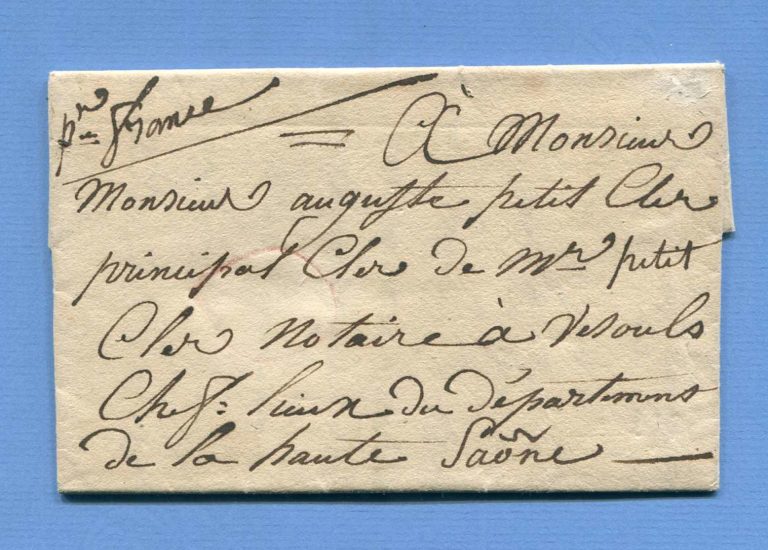 pr france
= À Monsieur
Monsieur auguste petit Cler
principal Cler de Mr petit
Cler Notaire à Vesouls
Chef: lieux du département
de la haute Saône —